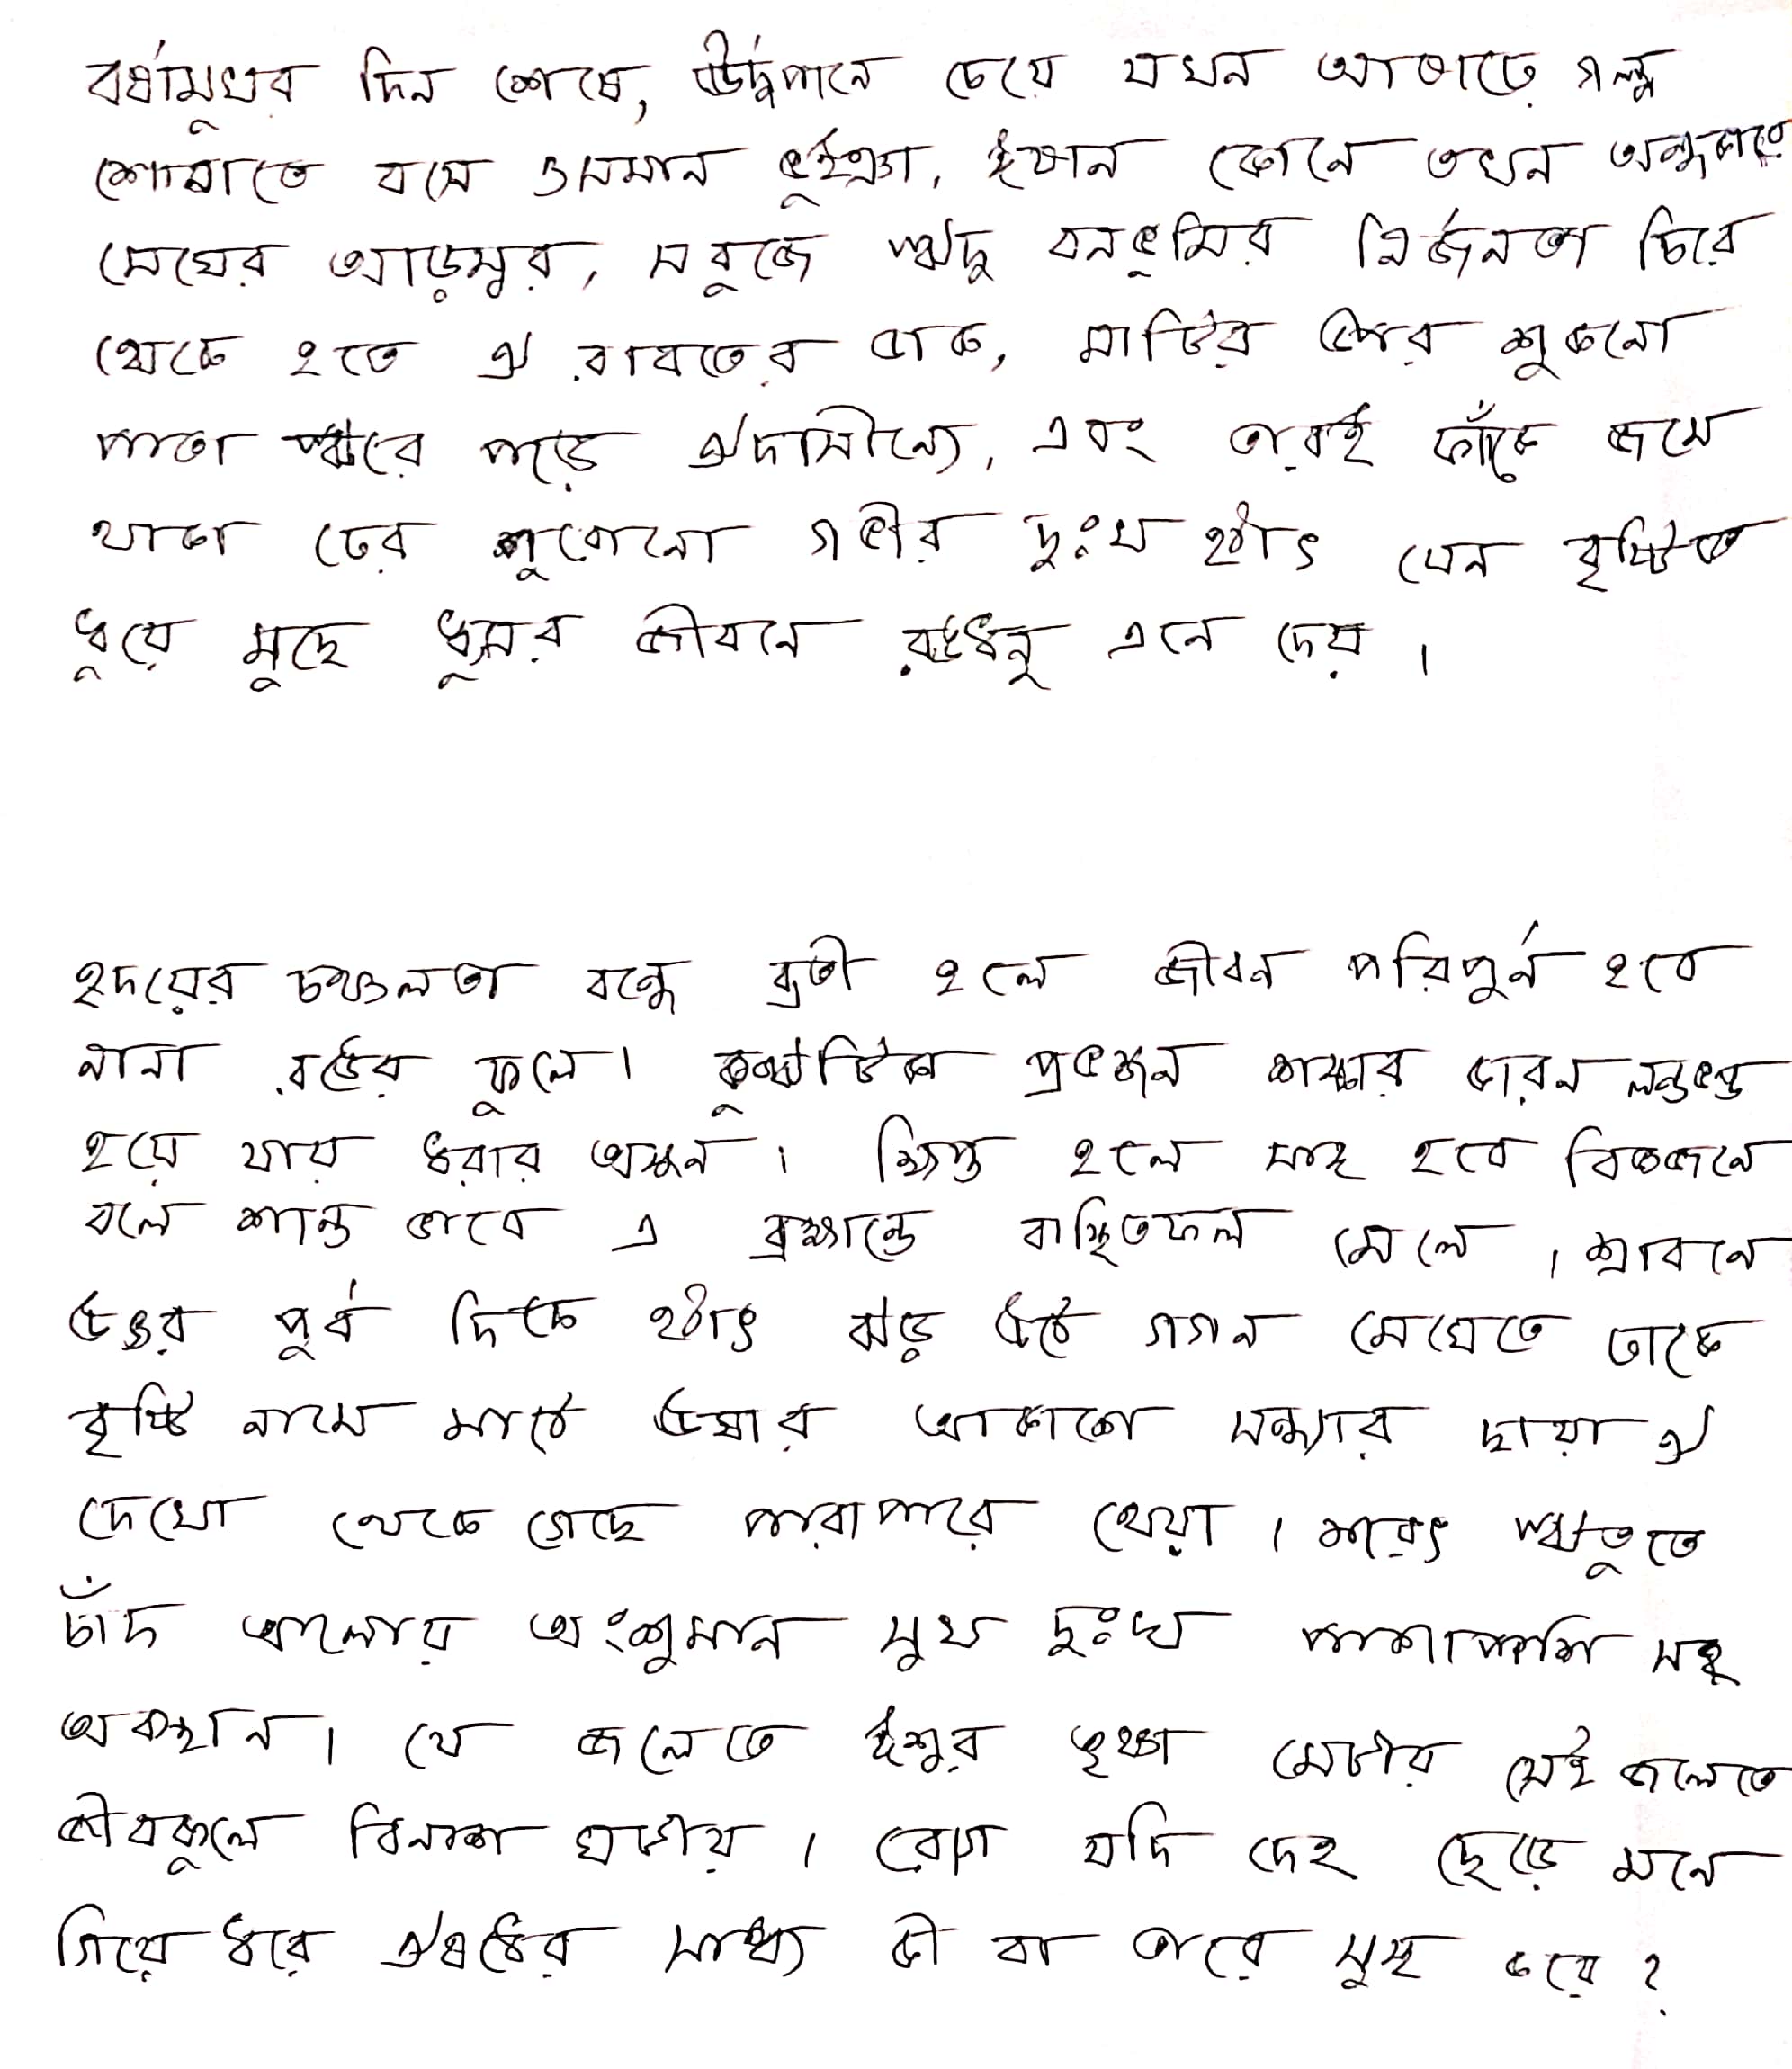 বর্ষামুখর দিন শেষে, উর্দ্ধপানে চেয়ে যখন আষাঢ়ে গল্প
শোনাতে বসে ওসমান ভুঁইঞা, ঈষান কোনে তখন অন্ধকার
মেঘের আড়ম্বর, সবুজে ঋদ্ধ বনভূমির নির্জনতা চিরে
থেকে হতে ঐ রাবতের ডাক, মাটির উপর শুকনো
পাতা ঝরে পড়ে ঔদাসীন্যে, এবং তারই ফাঁকে জমে
থাকা ঢের পুরোনো গভীর দুঃখ হঠাৎ যেন বৃষ্টিতে
ধুয়ে মুছে ধুসর জীবনে রঙধনু এনে দেয় ।
হৃদয়ের চঞ্চলতা বন্ধে ব্রতী হলে জীবন পরিপুর্ন হবে
নানা রঙের ফুলে। কুঞ্ঝটিকা প্রভঞ্জন শঙ্কার কারন লন্ডভন্ড
হয়ে যায় ধরার অঙ্গন । ক্ষিপ্ত হলে সাঙ্গ হবে বিজ্ঞজনে
বলে শান্ত ভাবে এ ব্রহ্মান্ডে বাঞ্ছিতফল মেলে । শ্রাবনে
উত্তর পুর্ব দিকে হঠাৎ ঝড় উঠে গগন মেঘেতে ঢাকে
বৃষ্টি নামে মাঠে উষার আকাশে সন্ধ্যার ছায়া ঐ
দেখো থেকে গেছে পারাপারে খেয়া । শরৎ ঋতুতে
চাঁদ আলোয় অংশুমান সুখ দুঃখ পাশাপাশি সহ
অবস্থান । যে জলেতে ঈশ্বর তৃষ্ণা মেটায় সেই জলেতে
জীবকুলে বিনাশ ঘটায় । রোগ যদি দেহ ছেড়ে মনে
গিয়ে ধরে ঔষধের সাধ্য কী বা তারে সুস্থ করে ?